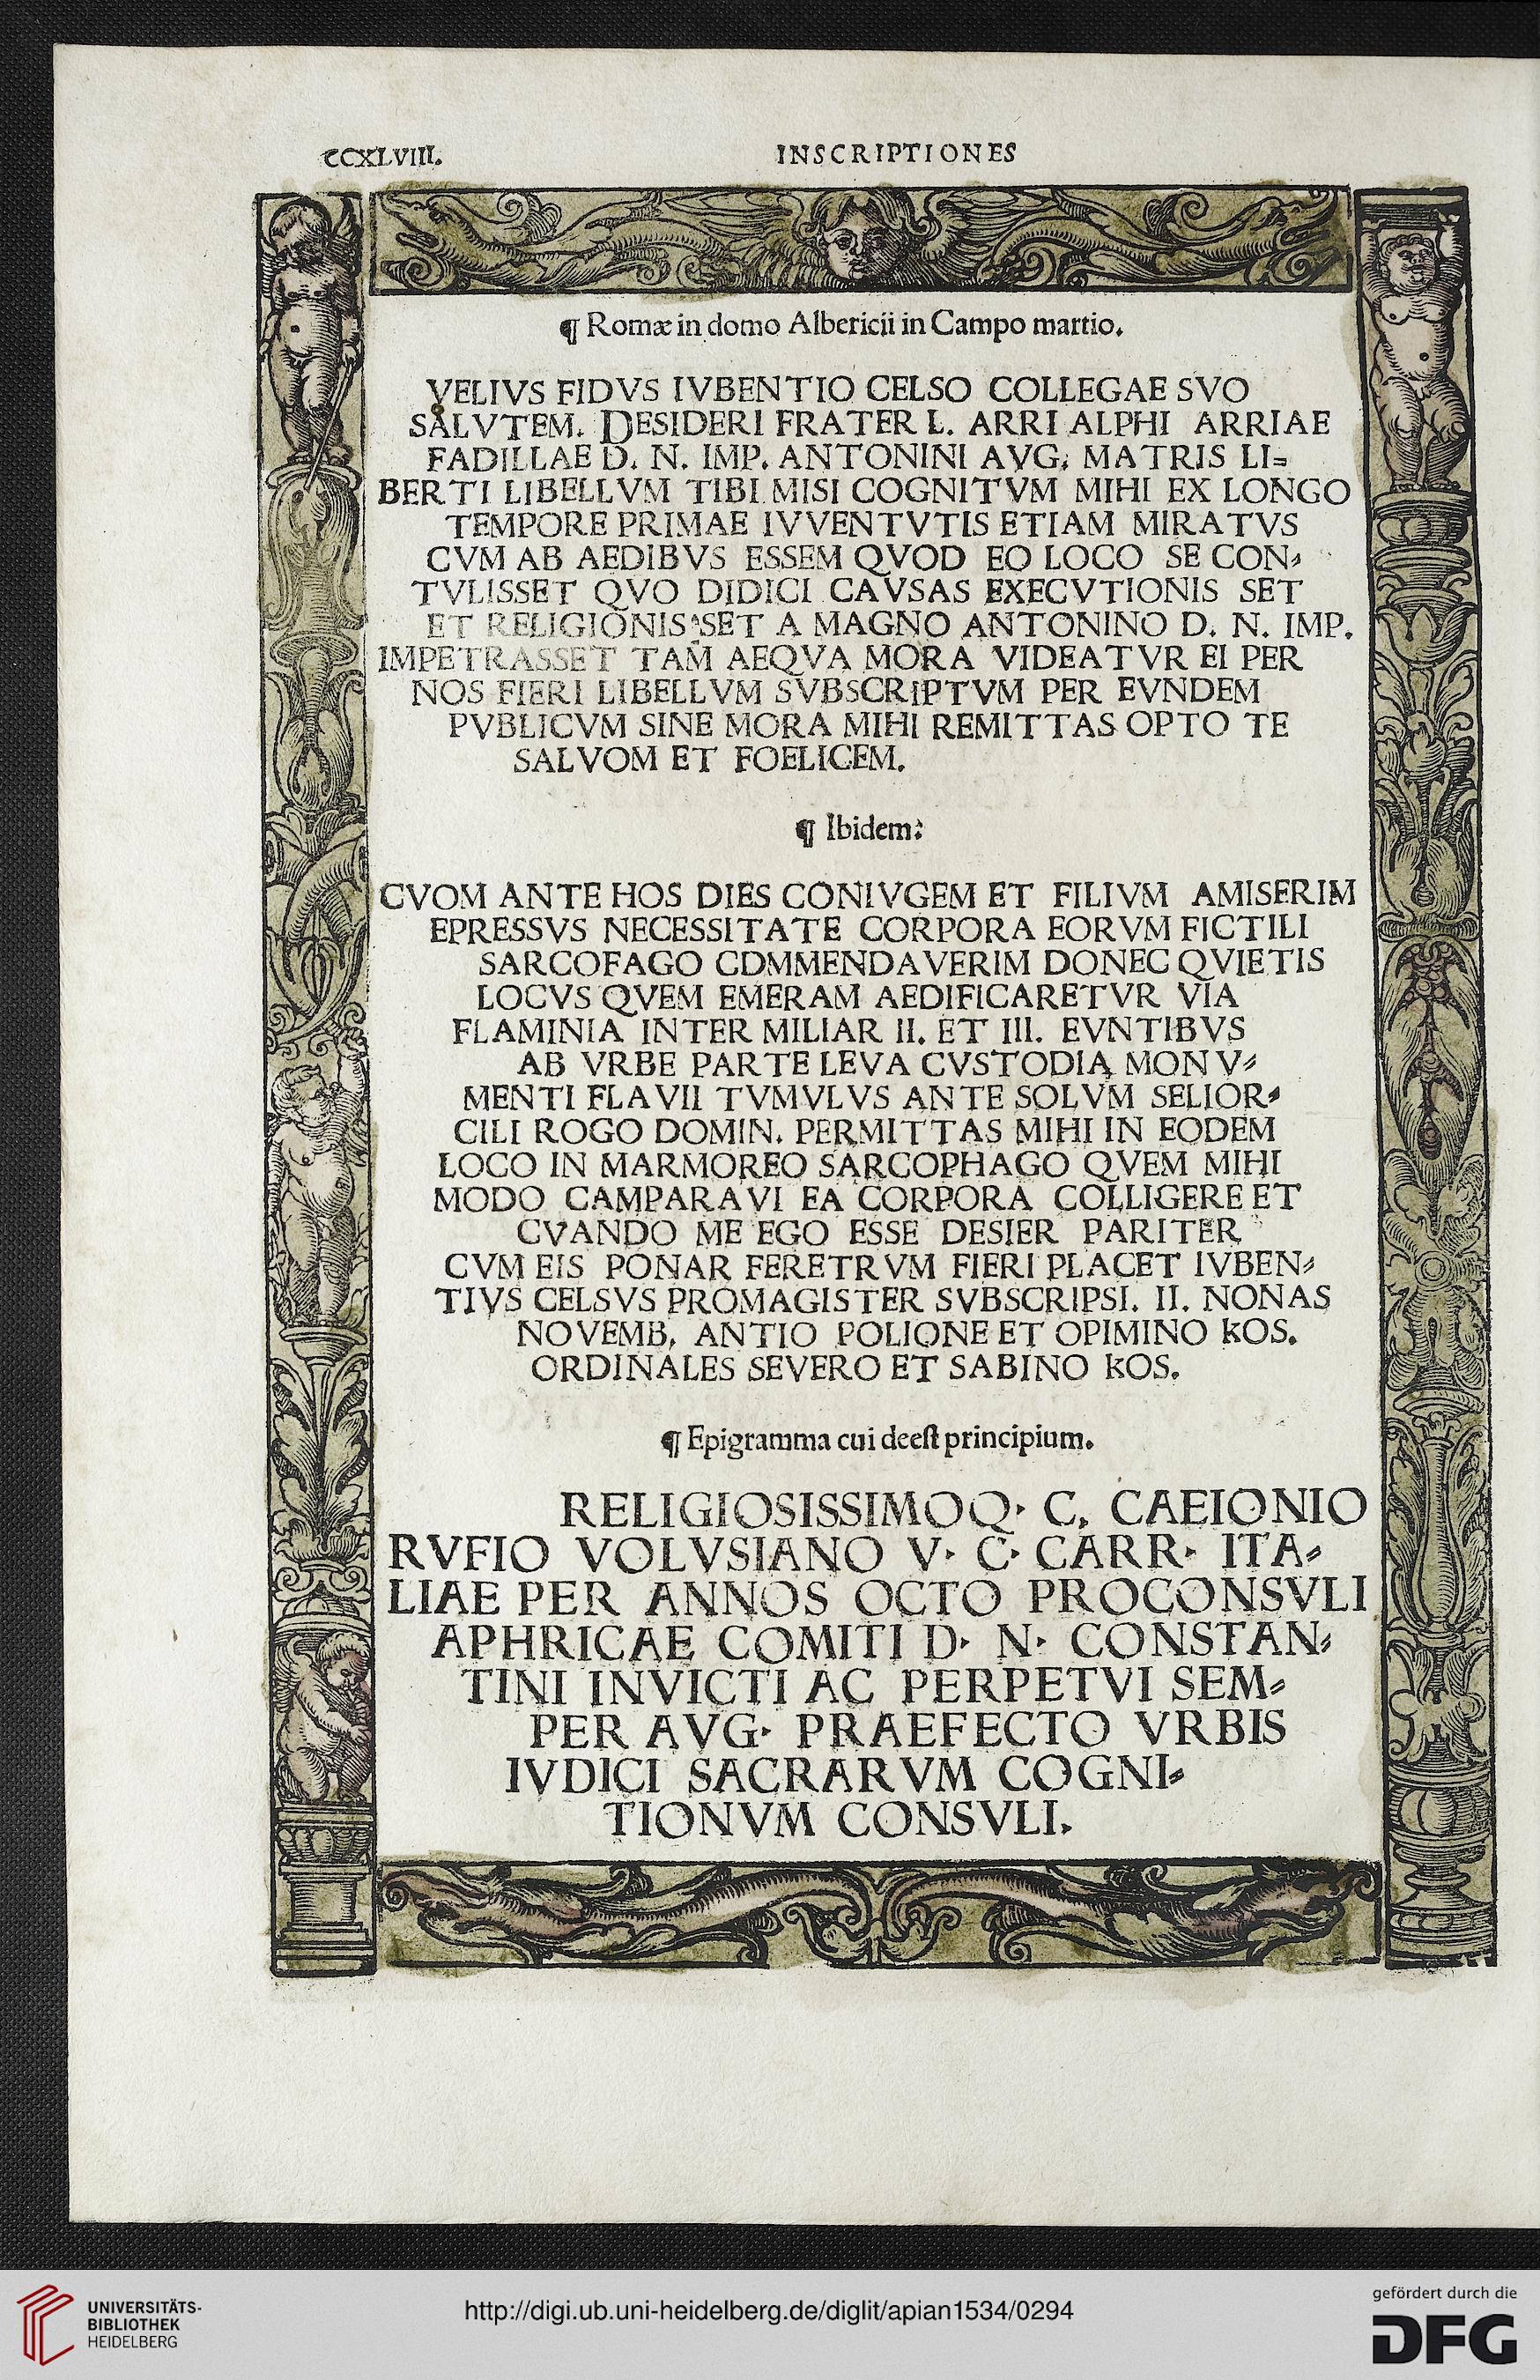 CCXLVIII.
INSCRIPTIONES
¶ Romæ in domo Albericii in Campo martio.
VELIVS FIDVS IVBENTIO CELSO COLLEGAE SVO
SALVTEM. DESIDERI FRATER L. ARRI ALPHI ARRIAE
FADILLAE D. N. IMP. ANTONINI AVG. MATRIS LI=
BERTI LIBELLVM TIBI MISI COGNITVM MIHI EX LONGO
TEMPORE PRIMAE IVVENTVTIS ETIAM MIRATVS
CVM AB AEDIBVS ESSEM QVOD EO LOCO SE CON=
TVLISSET QVO DIDICI CAVSAS EXECVTIONIS SET
ET RELIGIONIS SET A MAGNO ANTONINO D. N. IMP.
IMPETRASSET TAM AEQVA MORA VIDEATVR EI PER
NOS FIERI LIBELLVM SVBSCRIPTVM PER EVNDEM
PVBLICVM SINE MORA MIHI REMITTAS OPTO TE
SALVOM ET FOELICEM.
¶ Ibidem:
CVOM ANTE HOS DIES CONIVGEM ET FILIVM AMISERIM
EPRESSVS NECESSITATE CORPORA EORVM FICTILI
SARCOFAGO CDMMENDAVERIM DONEC QVIETIS
LOCVS QVEM EMERAM AEDIFICARETVR VIA
FLAMINIA INTER MILIAR II. ET III. EVNTIBVS
AB VRBE PARTE LEVA CVSTODIA MONV=
MENTI FLAVII TVMVLVS ANTE SOLVM SELIOR=
CILI ROGO DOMIN. PERMITTAS MIHI IN EODEM
LOCO IN MARMOREO SARCOPHAGO QVEM MIHI
MODO CAMPARAVI EA CORPORA COLLIGERE ET
CVANDO ME EGO ESSE DESIER PARITER
CVM EIS PONAR FERETRVM FIERI PLACET IVBEN=
TIVS CELSVS PROMAGISTER SVBSCRIPSI. II. NONAS
NOVEMB. ANTIO POLIONE ET OPIMINO KOS.
ORDINALES SEVERO ET SABINO KOS.
¶ Epigramma cui deest principium.
RELIGIOSISSIMOQ· C. CAEIONIO
RVFIO VOLVSIANO V· C· CARR· ITA=
LIAE PER ANNOS OCTO PROCONSVLI
APHRICAE COMITI D· N· CONSTAN=
TINI INVICTI AC PERPETVI SEM=
PER AVG· PRAEFECTO VRBIS
IVDICI SACRARVM COGNI=
TIONVM CONSVLI.
UNIVERSITÄTS-
BIBLIOTHEK
HEIDELBERG
http://digi.ub.uni-heidelberg.de/diglit/apian1534/0294
gefördert durch die
DFG